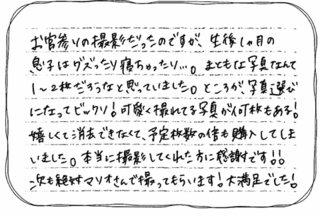 お宮参りの撮影だったのですが、生後1ヶ月の
息子はグズったり寝ちゃったり…。まともな写真なんて
1~2枚だろうなと思っていました。ところが、写真選び
になってビックリ！可愛く撮れてる写真が何枚もある！
嬉しくて消去できなくて、予定枚数の倍も購入してしま
いました。本当に撮影してくれた方に感謝です！！
次も絶対マリオさんで撮ってもらいます！大満足でした！